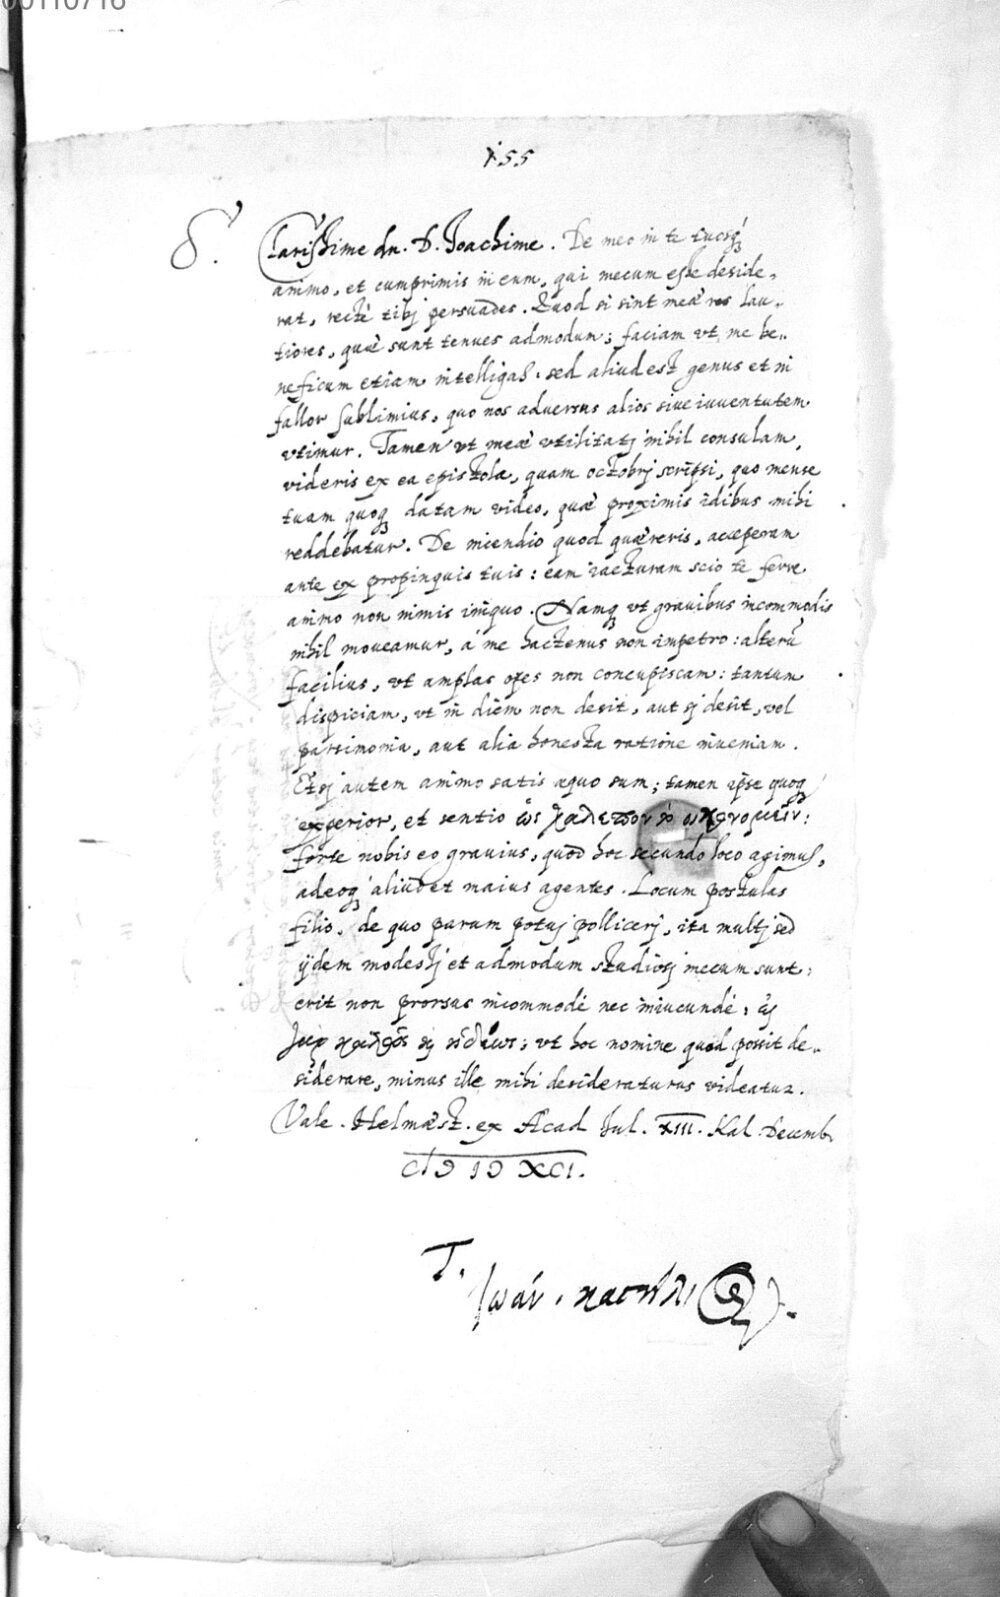 00110716
155
S.
Clarissime dn. D. Joachime. De meo in te tuosq́
animo, et cumprimis in eum, qui mecum esse deside-
rat, rectè tibj persuades. Quod si sint meae res lau-
tiores, quae sunt tenues admodum; faciam vt me be-
neficum etiam intelligas. sed aliud est genus et ni
fallor sublimius, quo nos adversus alios siue iuventutem
vtimur. Tamen vt meae vtilitatj nihil consulam,
videris ex ea epistola, quam octobrj scripsi, quo mense
tuam quoq datam video, quae proximis idibus mihi
reddebatur. De incendio quod quaereris, acceperam
ante ex propinquis tuis: eam iacturam scio te ferre
animo non nimis iniquo. Namq vt gravibus incommodis
nihil moveamur, a me hactenus non impetro: alterū
facilius, vt amplas opes non concupiscam: tantum
dispiciam, vt in diem non desit, aut sj desit, vel
parsimonia, aut alia honesta ratione inveniam.
Etsj autem animo satis aequo sum; tamen ipse quoq
experior, et sentio ὡς χαλεπὸν τὸ οἰκονομεῖν:
forte nobis eo gravius, quod hoc secundo loco agimus,
adeoq aliud et maius agentes. Locum postulas
filio. de quo parum potuj pollicerj, ita multj sed
ijdem modestj et admodum studiosj mecum sunt:
erit non prorsus incommodè nec iniucundè,
ut hoc nomine quod possit de-
siderare, minus ille mihi desideraturus videatur.
Vale. Helmaest. ex Acad Jul. XIII. Kal. Decemb.
CIↃ IↃ XCI.
T.
Ἰωάν. κασήλι(ος).